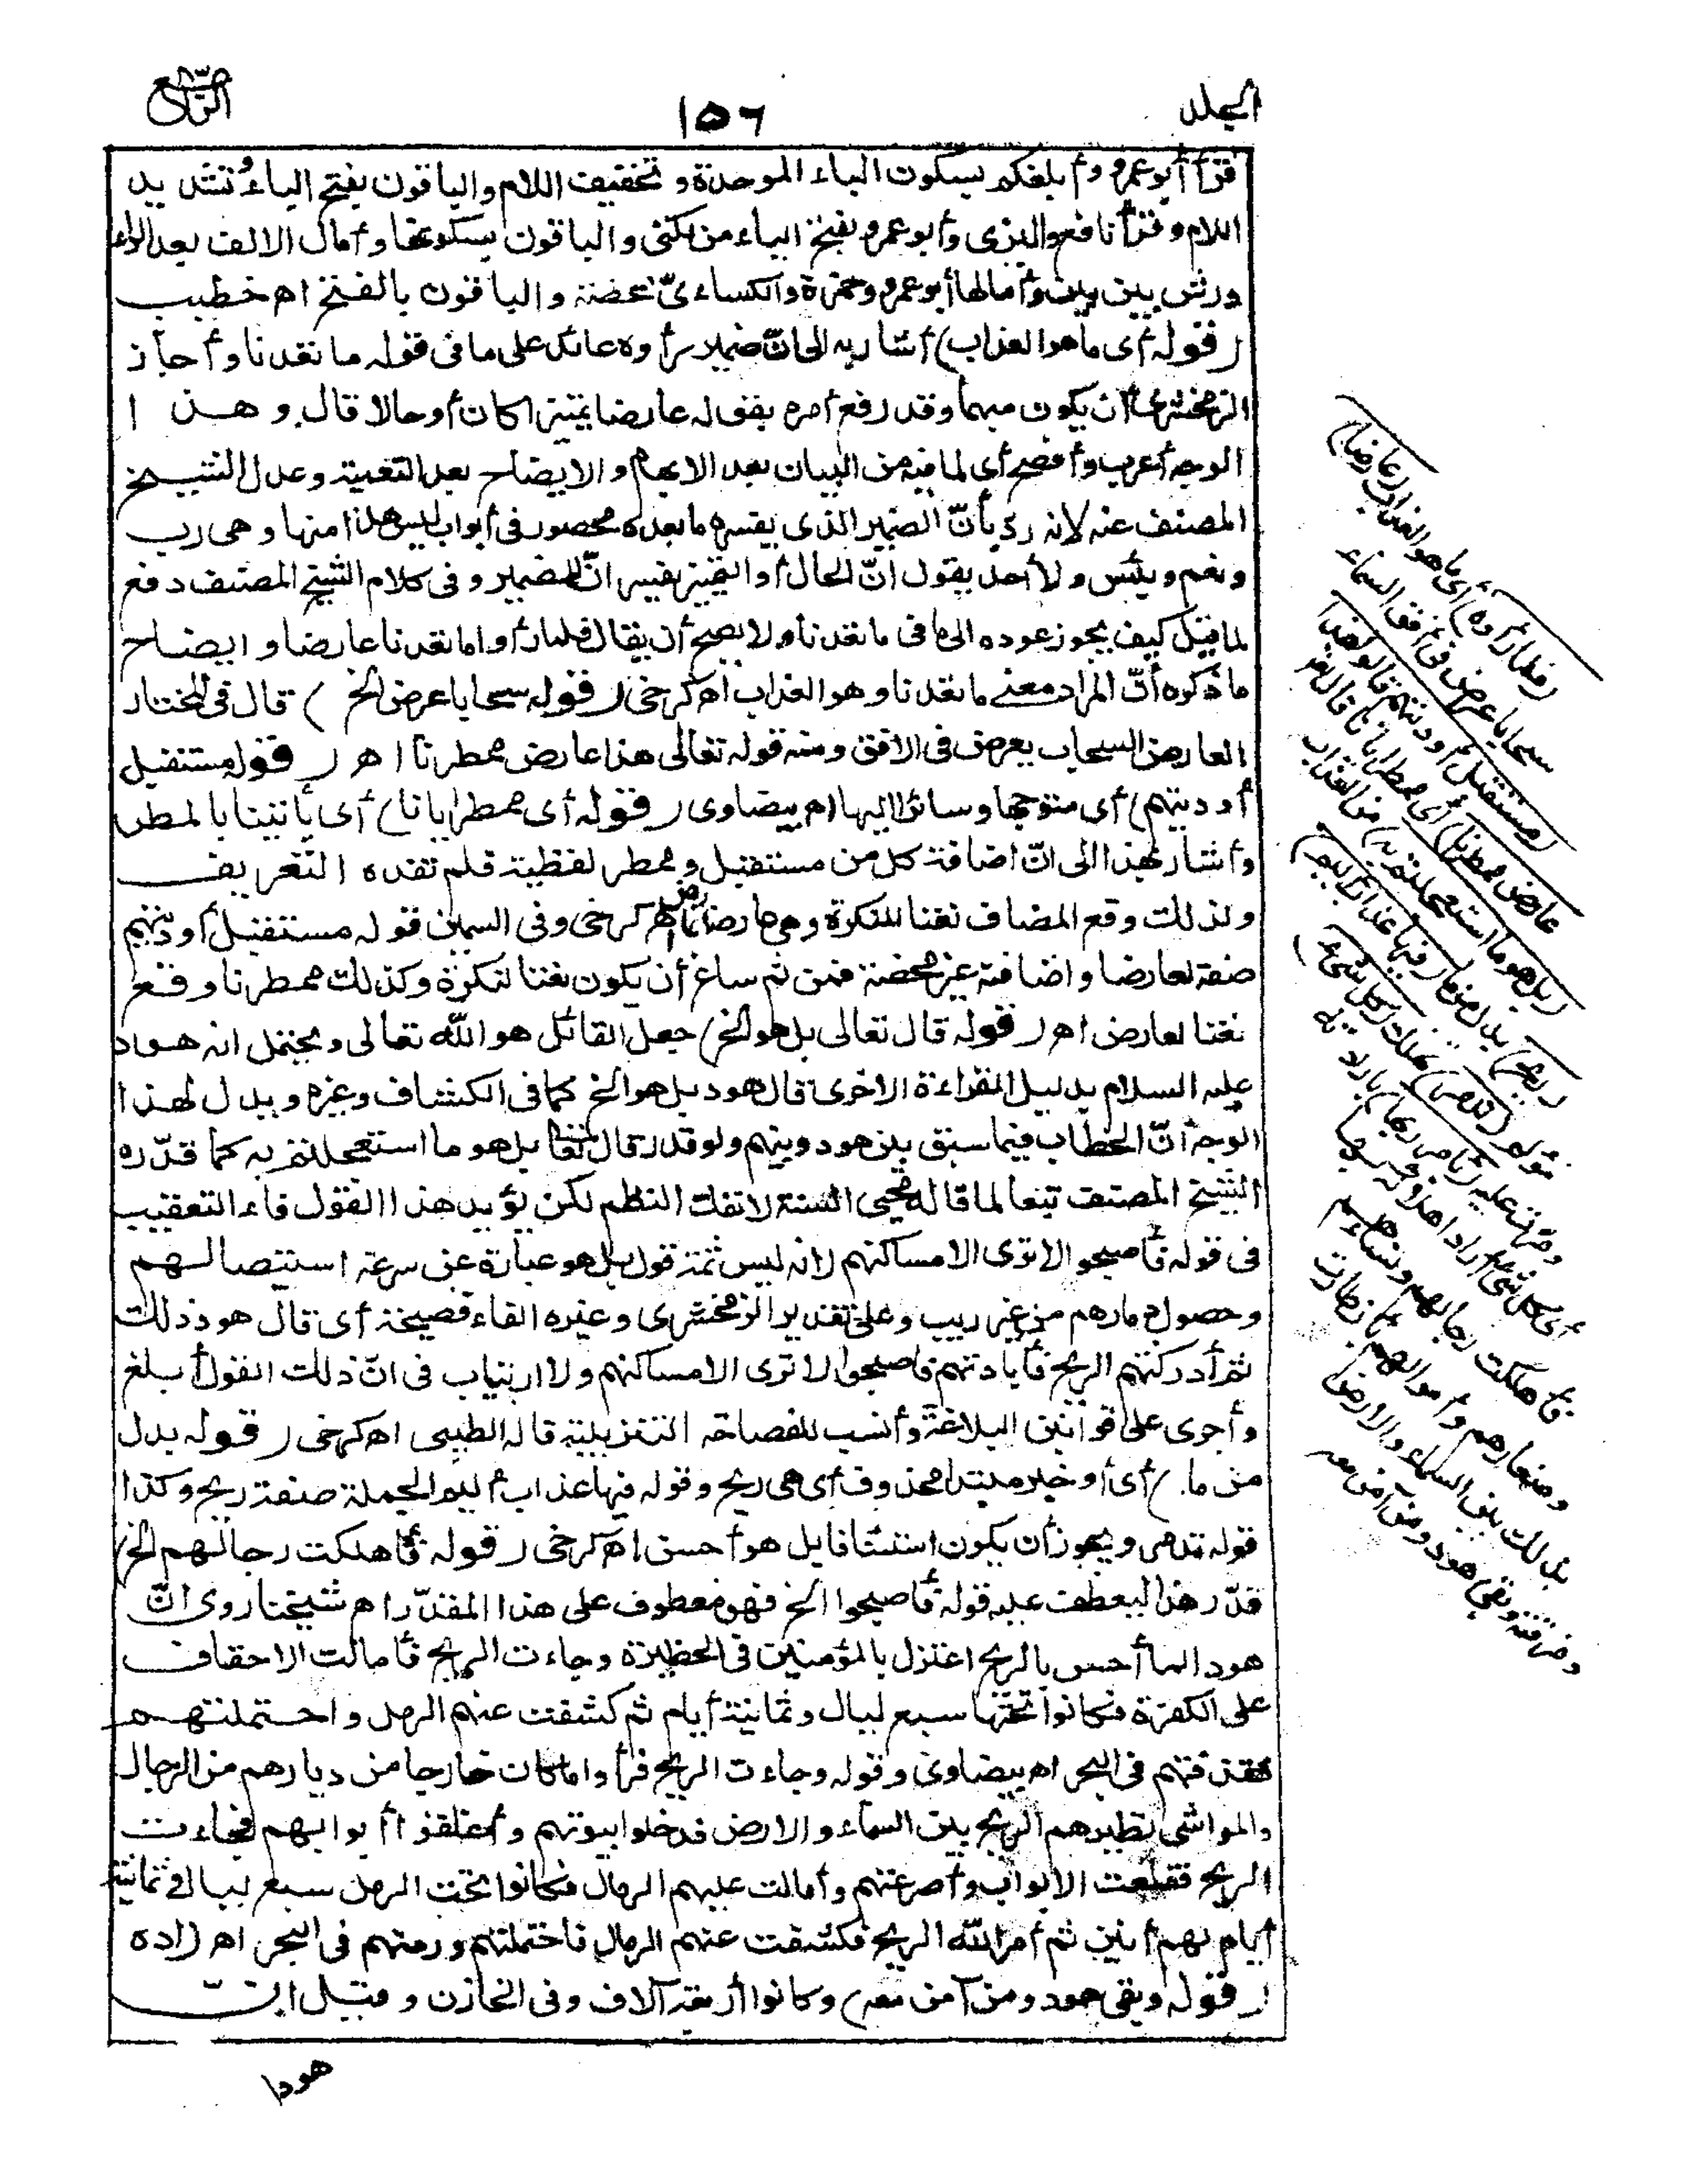 المجلد
١٥٦
الرابع
قرأ أبو عمرو وأبلغكم بسكون الباء الموحدة وتخفيف اللام والباقون بفتح الباء وتشديد
اللام وقرأ نافع والبزى وأبو عمرو بفتح الياء من لكنى والباقون بسكونها وأمال الالف بعد الراء
ورش بين بين وأمالها أبو عمرو وحمزة والكسائى محضة والباقون بالفتح اه خطيب
(قوله أى ما هو العذاب) أشار به الى انّ ضمير رأوه عائد على ما فى قوله ما تعدنا وأجاز
الزمخشرى أن يكون مبهما وقد رفع أمره بقوله عارضا تمييزا كان أو حالا قال وهـذا
الوجه أعرب وأفصح أى لما فيه من البيان بعد الابهام والايضاح بعد التعمية وعدل الشيخ
المصنف عنه لانه ردّ بأنّ الضمير الذى يفسره ما بعده محصور فى أبواب ليس هذا منها وهى رب
ونعم وبئس ولا أحد يقول انّ الحال أو التمييز يفسران الضمير وفى كلام الشيخ المصنف دفع
لما قيل كيف يجوز عوده الى ما فى ما تعدنا ولا يصح أن يقال فلما رأوا ما تعدنا عارضا وايضاح
ما ذكره أنّ المراد معنى ما تعدنا وهو العذاب اه كرخى (قوله سحابا عرض الخ) قال فى المختار
العارض السحاب يعرض فى الافق ومنه قوله تعالى هذا عارض ممطرنا اه (قوله مستقبل
أوديتهم) أى متوجها وسائرا اليها اه بيضاوى (قوله أى ممطرا يانا) أى يأتينا بالمطر
وأشار بهذا الى انّ اضافة كل من مستقبل وممطر لفظية فلم تفده التعريف
ولذلك وقع المضاف نعتا للنكرة وهى عارضا اه كرخى وفى السمين قوله مستقبل أوديتهم
صفة لعارضا واضافته غير محضة فمن ثم ساغ أن يكون نعتا لنكرة وكذلك ممطرنا وقع
نعتا لعارض اه (قوله قال تعالى بل هو الخ) جعل القائل هو الله تعالى ويحتمل انه هـود
عليه السلام بدليل القراءة الاخرى قال هود بل هو الخ كما فى الكشاف وغيره ويدل لهذا
الوجه أنّ الخطاب فيما سبق بين هود وبينهم ولو قدر قال الله تعالى بل هو ما استعجلتم به كما قدّره
الشيخ المصنف تبعا لما قاله محيى السنة لانفك النظم لكن يؤيد هذا القول فاء التعقيب
فى قوله فأصبحوا لا ترى الا مساكنهم لانه ليس ثمة قول بل هو عبارة عن سرعة استئصالهم
وحصول دمارهم من غير ريب وعلى تقدير الزمخشرى وغيره الفاء فصيحة أى قال هود ذلك
ثم أدركتهم الريح فأبادتهم فأصبحوا لا ترى الا مساكنهم ولا ارتياب فى انّ ذلك القول أبلغ
وأجرى على قوانين البلاغة وأنسب للفصاحة التنزيلية قاله الطيبى اه كرخى (قوله بدل
من ما) أى أو خبر مبتدا محذوف أى هى ريح وقوله فيها عذاب أليم الجملة صفة ريح وكذا
قوله تدمر ويجوز أن يكون استئنافا بل هو أحسن اه كرخى (قوله فأهلكت رجالهم الخ)
قدّر هذا ليعطف عليه قوله فأصبحوا الخ فهو معطوف على هذا المقدّر اه شيخنا روى انّ
هودا لما أحس بالريح اعتزل بالمؤمنين فى الحظيرة وجاءت الريح فأمالت الاحقاف
على الكفرة فكانوا تحتها سبع ليال وثمانية أيام ثم كشفت عنهم الرمل واحتملتهـم
فقذفتهم فى البحر اه بيضاوى وقوله وجاءت الريح فرأوا ما كان خارجا من ديارهم من الرجال
والمواشى تطيرهم الريح بين السماء والارض فدخلوا بيوتهم وأغلقوا أبوابهم فجاءت
الريح فقلعت الابواب وأصرعتهم وأمالت عليهم الرمال فكانوا تحت الرمل سبع ليال وثمانية
أيام لهم أنين ثم أمر الله الريح فكشفت عنهم الرمال فاحتملتهم ورمتهم فى البحر اه زاده
(قوله وبقى هود ومن آمن معه) وكانوا أربعة آلاف وفى الخازن وقيل انّ
هودا
(فلما رأوه) أى ما هو العذاب (عارضا)
سحابا عرض فى أفق السماء
(مستقبل أوديتهم قالوا هذا
عارض ممطرنا) أى ممطر ايانا قال تعالى
(بل هو ما استعجلتم به) من العذاب
(ريح) بدل من ما (فيها عذاب أليم)
(تدمر) تهلك (كل شىء)
مرّت عليه (بأمر ربها) بارادته
أى كل شىء أراد اهلاكه بها
فأهلكت رجالهم ونساءهم
وصغارهم وأموالهم بأن طارت
بذلك بين السماء والارض
ومزقته وبقى هود ومن آمن معه